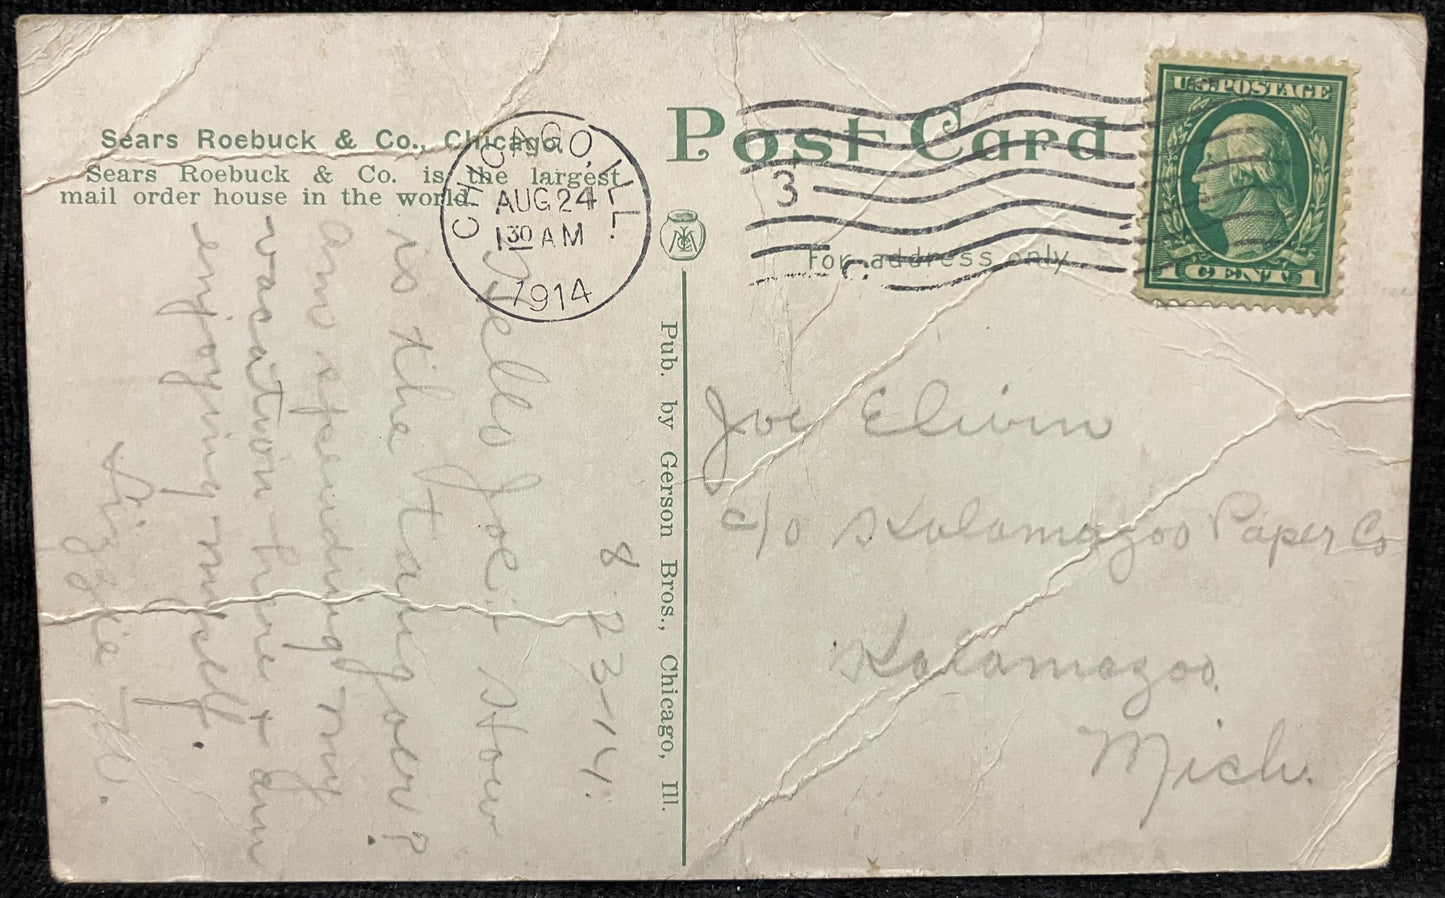 Sears Roebuck & Co., Chicago.
Sears Roebuck & Co. is the largest
mail order house in the world.
CHICAGO, ILL.
AUG 24
1 30 AM
1914
Post Card
3
For address only
U.S. POSTAGE
1 CENT 1
Pub. by Gerson Bros., Chicago, Ill.
8-23-14.
Hello Joe: How
is the tango er?
am spending my
vacation here & am
enjoying myself.
Lizzie W.
Joe Elwin
c/o Kalamazoo Paper Co
Kalamazoo
Mich.